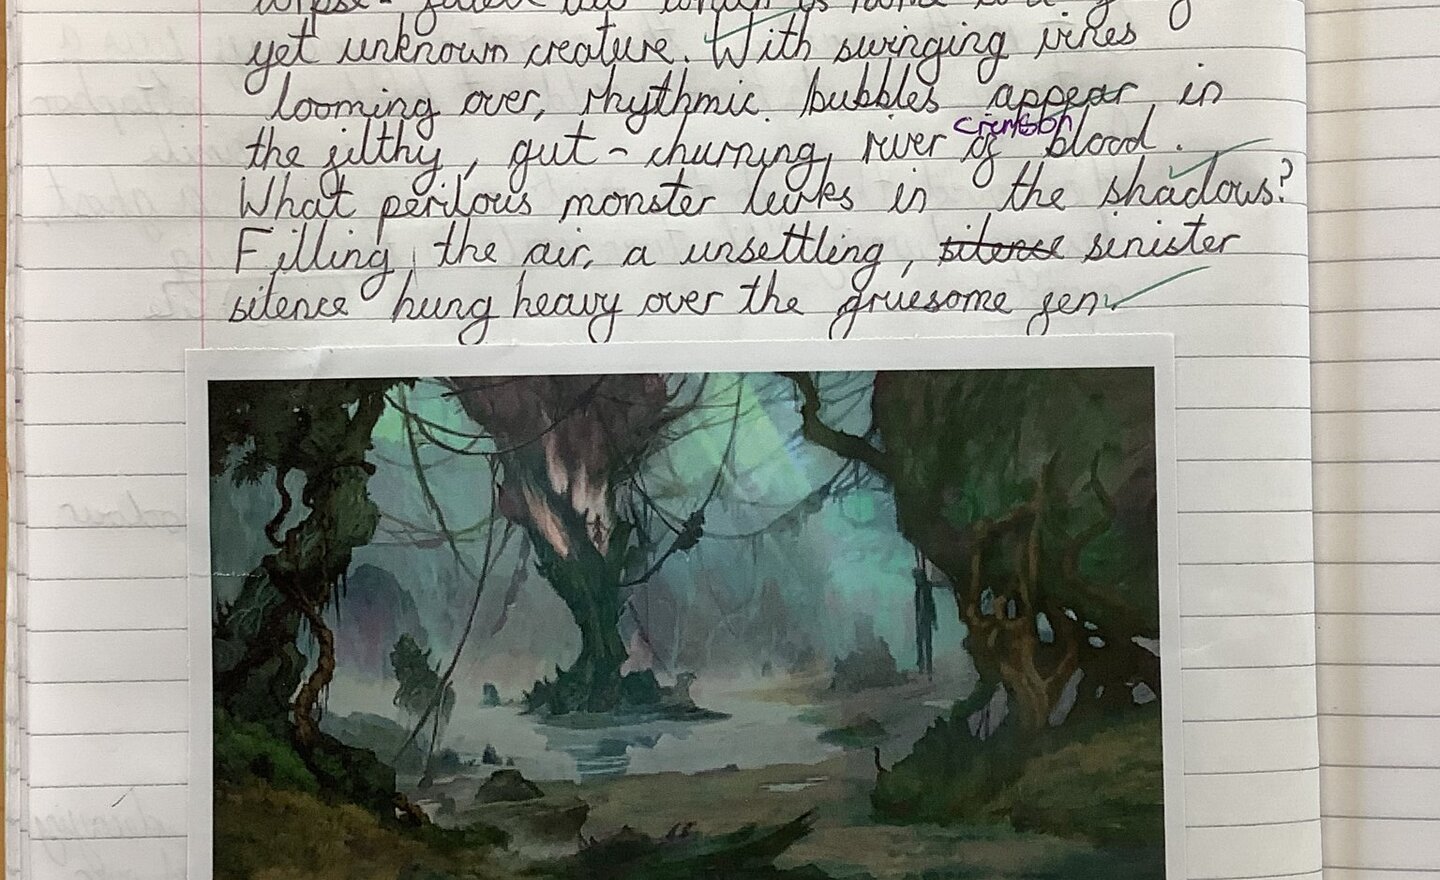 yet unknown creature. With swinging vines
looming over, rhythmic bubbles appear in
crimson
the filthy, gut-churning, river of blood.
What perilous monster lurks in the shadows?
Filling the air, a unsettling, silence sinister
silence hung heavy over the gruesome fen.